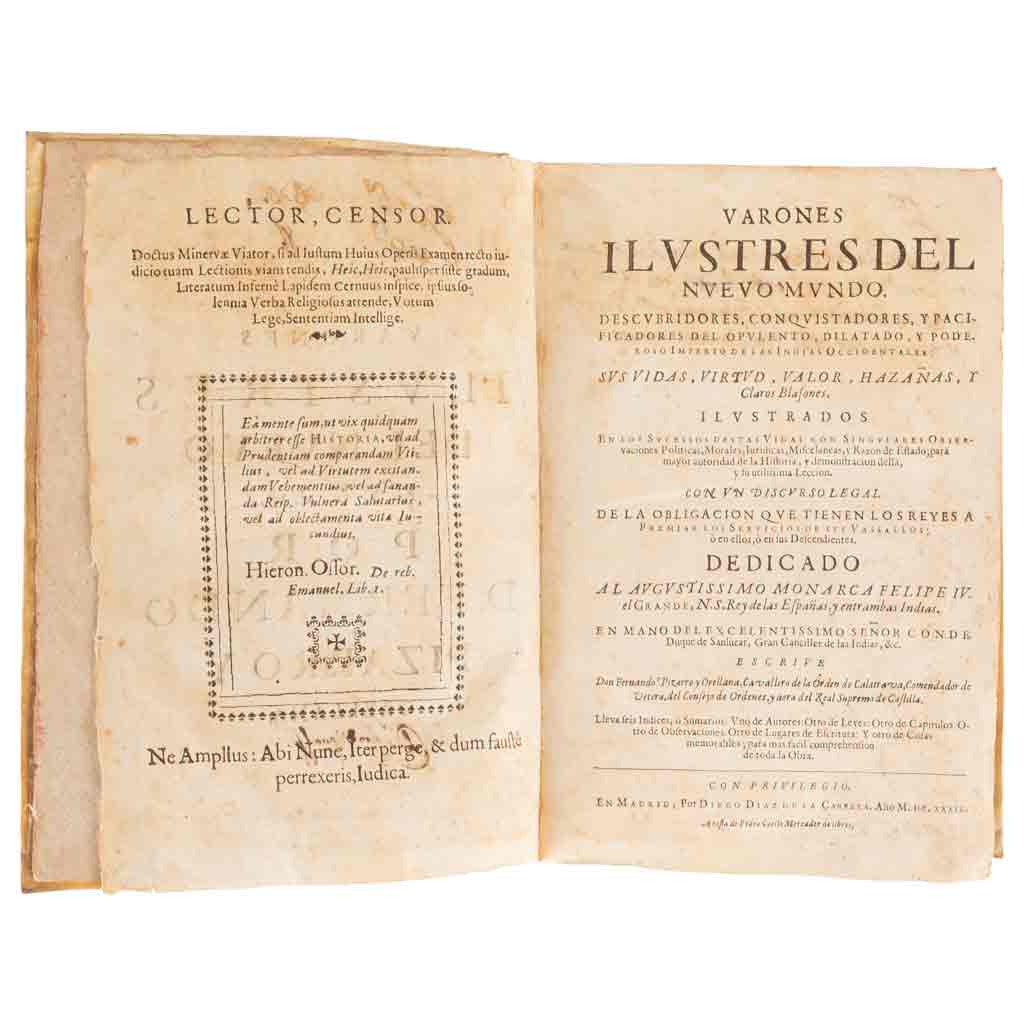 LECTOR, CENSOR.
Doctus Minervæ Viator, si ad Iustum Huius Operis Examen recto iu-
dicio tuam Lectionis viam tendis, Heic, Heic, paulisper siste gradum,
Literatum Infernè Lapidem Cernuus inspice, ipsius so-
lennia Verba Religiosus attende, Votum
Lege, Sententiam Intellige.
Eâ mente sum, ut vix quidquam
arbitrer esse HISTORIA, vel ad
Prudentiam comparandam Vti-
lius, vel ad Virtutem excitan-
dam Vehementius, vel ad sanan-
da Reip. Vulnera Salutarius,
vel ad oblectamenta vitæ Iu-
cundius.
Hieron. Ossor. De reb.
Emanuel. Lib. 1.
Ne Ampllus: Abi Nunc, Iter perge, & dum faustè
perrexeris, Iudica.
VARONES
ILVSTRES DEL
NVEVO MVNDO.
DESCVBRIDORES, CONQVISTADORES, Y PACI-
FICADORES DEL OPVLENTO, DILATADO, Y PODE-
ROSO IMPERIO DE LAS INDIAS OCCIDENTALES:
SVS VIDAS, VIRTVD, VALOR, HAZAÑAS, Y
Claros Blasones.
ILVSTRADOS
EN LOS SVCESSOS DESTAS VIDAS CON SINGVLARES OBSER-
vaciones Politicas, Morales, Iuridicas, Miscelaneas, y Razon de Estado; para
mayor autoridad de la Historia, y demonstracion della,
y su utilissima Leccion.
CON VN DISCVRSO LEGAL
DE LA OBLIGACION QVE TIENEN LOS REYES A
PREMIAR LOS SERVICIOS DE SVS VASSALLOS;
ò en ellos, ò en sus Descendientes.
DEDICADO
AL AVGVSTISSIMO MONARCA FELIPE IV.
el GRANDE, N. S. Rey de las Españas, y entrambas Indias.
EN MANO DEL EXCELENTISSIMO SEÑOR CONDE
Duque de Sanlucar, Gran Canciller de las Indias, &c.
ESCRIVE
Don Fernando Pizarro y Orellana, Cavallero de la Orden de Calatrava, Comendador de
Vetera, del Consejo de Ordenes, y aora del Real Supremo de Castilla.
Lleva seis Indices, ò Sumarios. Vno de Autores: Otro de Leyes: Otro de Capitulos. O-
tro de Observaciones. Otro de Lugares de Escritura: Y otro de Cosas
memorables; para mas facil comprehension
de toda la Obra.
CON PRIVILEGIO.
EN MADRID, Por DIEGO DIAZ DE LA CARRERA. Año M. DC. XXXIX.
A costa de Pedro Coello Mercader de libros,